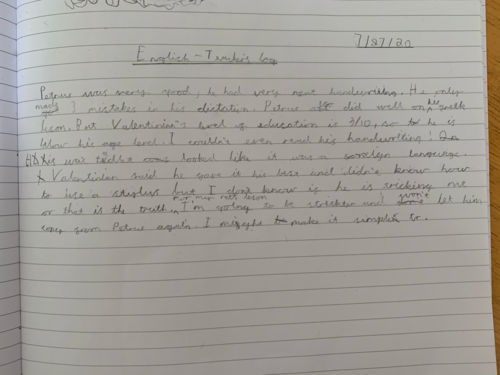 7/27/20
English - Teacher's log
Petrue was very good, he had very neat handwriting. He only
made 3 mistakes in his dictation. Petrue did well on his
lesson. But Valentinian's level of education is 3/10, so he is
below his age level. I couldn't even read his handwriting!
his wax tablet looked like it was a foreign language.
Valentinian said he gave it his best and didn't know how
to use a stylus but I don't know is he is tricking me
or that is the truth, I'm going to be stricter and won't let him
copy from Petrue again. I might make it simpler to.